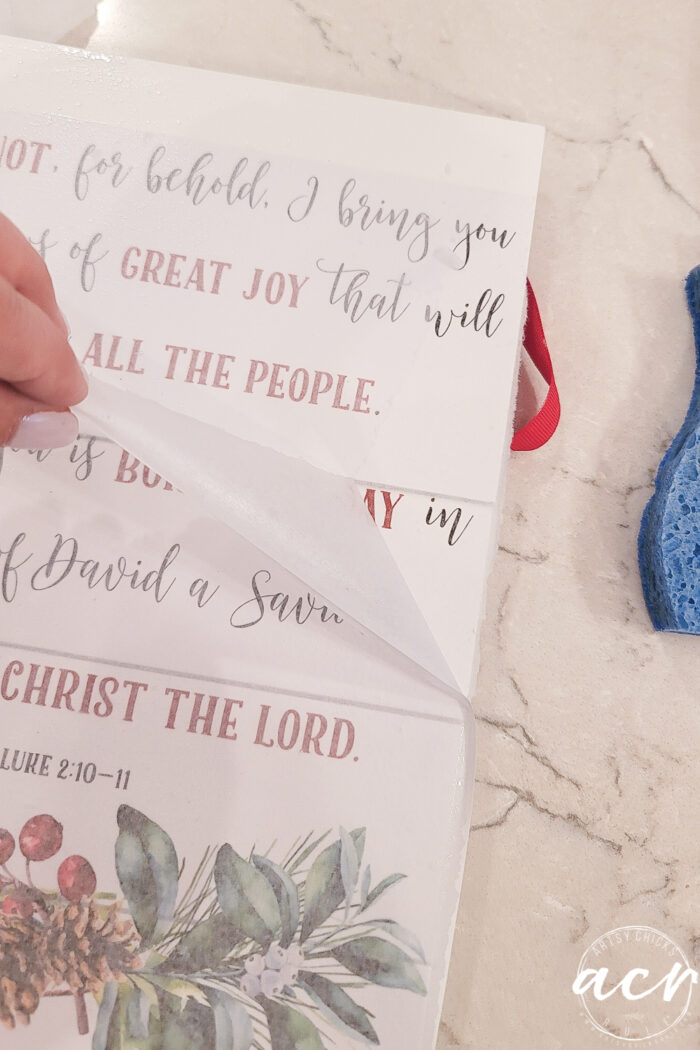 NOT, for behold, I bring you
of GREAT JOY that will
ALL THE PEOPLE.
is in
of David a
CHRIST THE LORD.
LUKE 2:10–11
ARTSY CHICKS RULE
acr